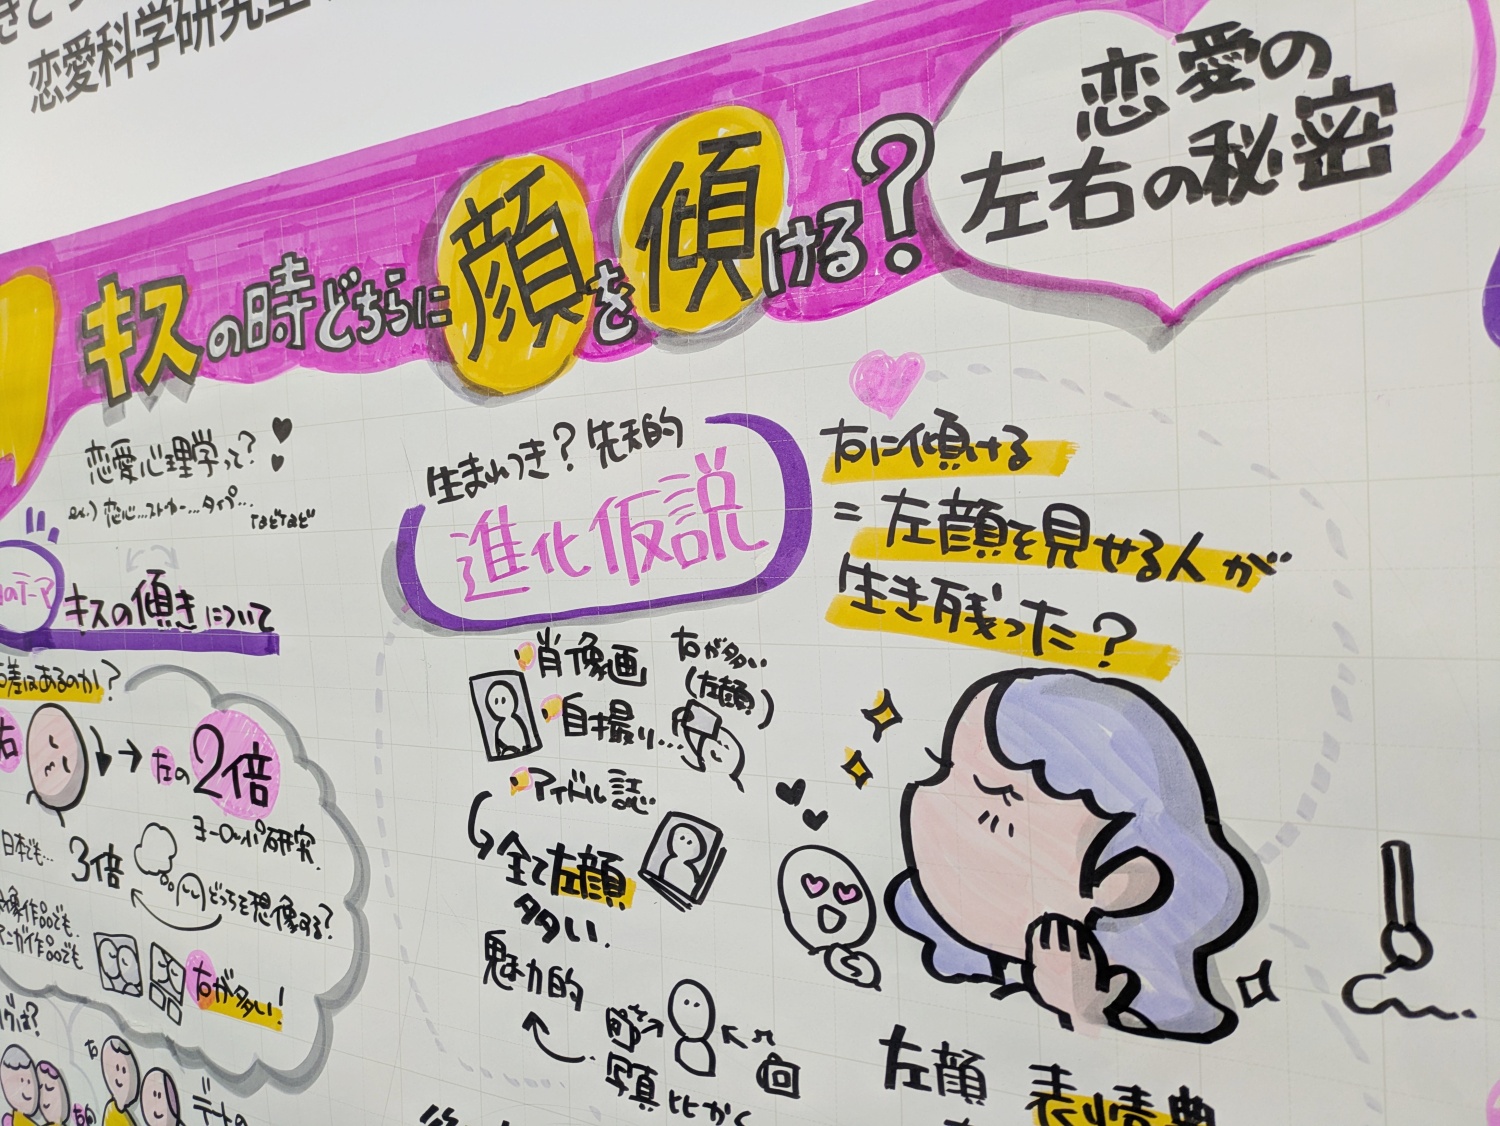 恋愛科学研究室
キスの時どちらに顔を傾ける?
恋愛の
左右の秘密
恋愛心理学って?
ex.) 恋心…ストーカー…タイプ…
などなど
テーマ
キスの傾きについて
差はあるのか?
右
左の2倍
ヨーロッパ研究
日本でも…
3倍
どっちを想像する?
像作品でも
マンガ作品でも
右が多い!
ハグは?
右
デートの
生まれつき? 先天的
進化仮説
肖像画
自撮り…
右が多い
(左顔)
アイドル誌
全て左顔
多い.
魅力的
写真 比かく
右に傾ける
=左顔を見せる人が
生き残った?
左顔 表情